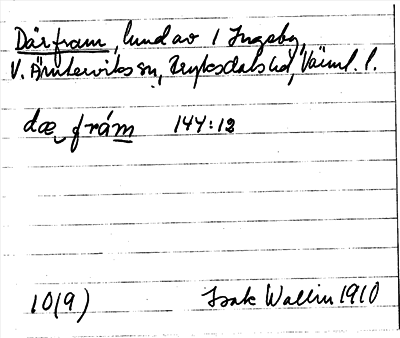 Där fram, lund av 1 Ingeby,
V. Ämterviks sn, Fryksdals hd, Värml. l.
dæ‿ frám 144:12
10(9)
Isak Wallin 1910